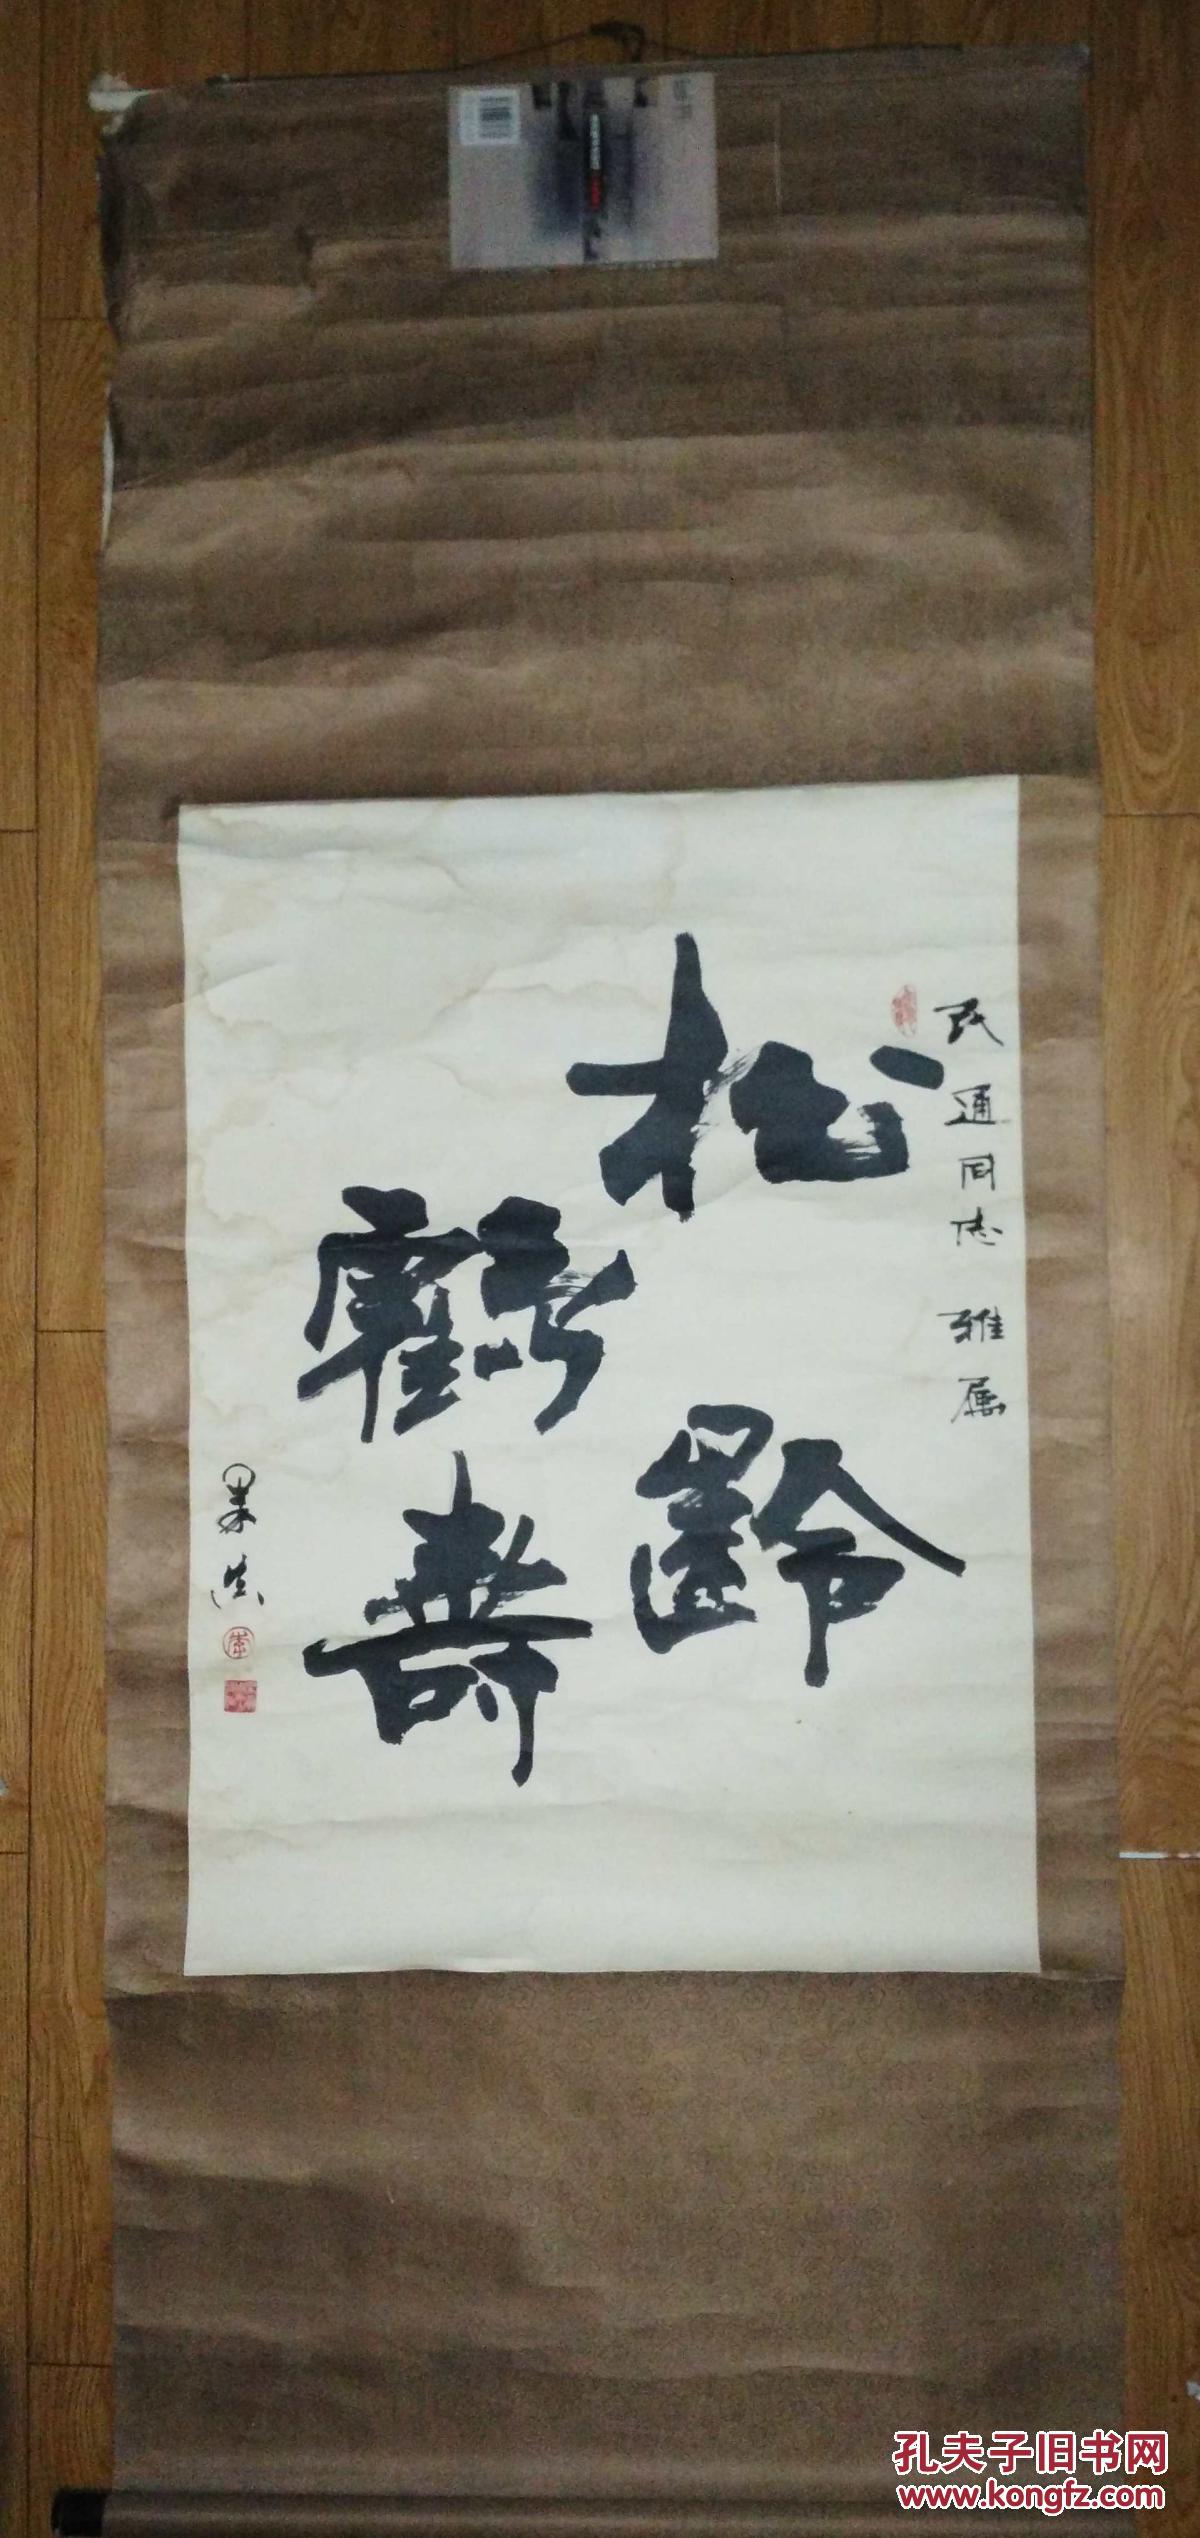 民通同志 雅属
松龄
鹤寿
果
孔夫子旧书网
www.kongfz.com